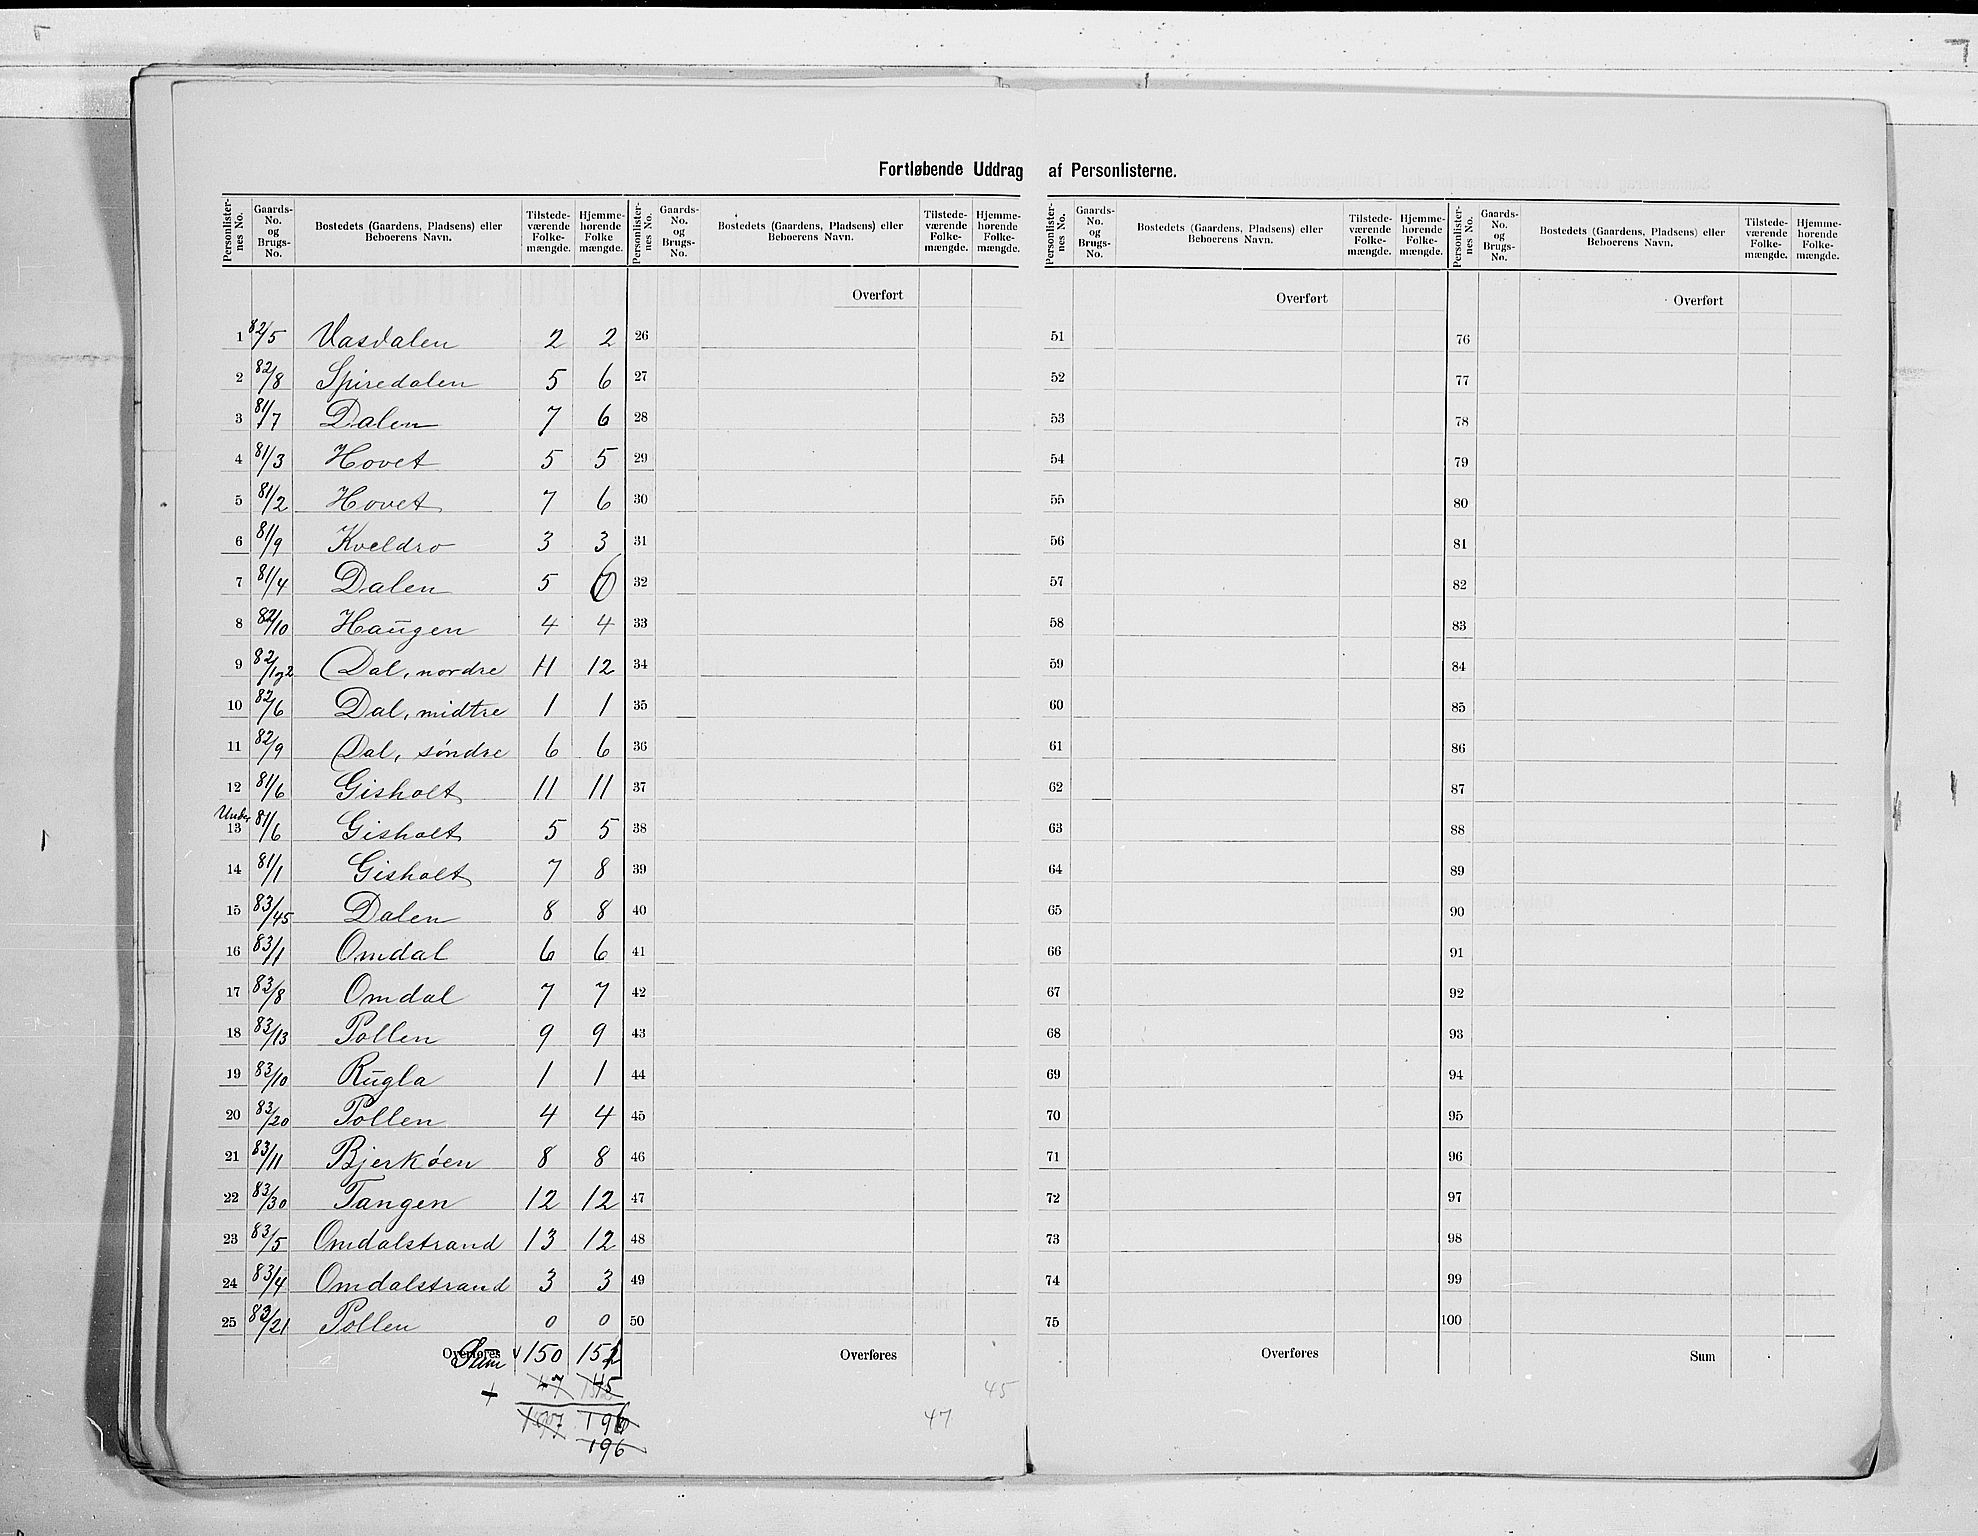 Fortløbende Uddrag af Personlisterne.
Personlister-nes No. Gaards-No. og Brugs-No. Bostedets (Gaardens, Pladsens) eller Beboerens Navn. Tilstede-værende Folke-mængde. Hjemme-hørende Folke mængde. Personlister-nes No. Gaards-No. og Brugs-No. Bostedets (Gaardens, Pladsens) eller Beboerens Navn. Tilstede-værende Folke-mængde. Hjemme-hørende Folke-mængde. Personlister-nes No. Gaards-No. og Brugs-No. Bostedets (Gaardens, Pladsens) eller Beboerens Navn. Tilstede-værende Folke-mængde. Hjemme-hørende Folke-mængde. Personlister-nes No. Gaards-No. og Brugs-No. Bostedets (Gaardens, Pladsens) eller Beboerens Navn. Tilstede-værende Folke-mængde. Hjemme-hørende Folke-mængde.
Overført Overført Overført
1 82/5 Vasdalen 2 2 26 51 76
2 82/8 Spiredalen 5 6 27 52 77
3 81/7 Dalen 7 6 28 53 78
4 81/3 Hovet 5 5 29 54 79
5 81/2 Hovet 7 6 30 55 80
6 81/9 Kveldro 3 3 31 56 81
7 81/4 Dalen 5 6 32 57 82
8 82/10 Haugen 4 4 33 58 83
9 82/1 og 2 Dal, nordre 11 12 34 59 84
10 82/6 Dal, midtre 1 1 35 60 85
11 82/9 Dal, søndre 6 6 36 61 86
12 81/6 Gisholt 11 11 37 62 87
Under
13 81/6 Gisholt 5 5 38 63 88
14 81/1 Gisholt 7 8 39 64 89
15 83/45 Dalen 8 8 40 65 90
16 83/1 Omdal 6 6 41 66 91
17 83/8 Omdal 7 7 42 67 92
18 83/13 Pollen 9 9 43 68 93
19 83/10 Rugla 1 1 44 69 94
20 83/20 Pollen 4 4 45 70 95
21 83/11 Bjerkøen 8 8 46 71 96
22 83/30 Tangen 12 12 47 72 97
23 83/5 Omdalstrand 13 12 48 73 98
24 83/4 Omdalstrand 3 3 49 74 99
25 83/21 Pollen 0 0 50 75 100
Overføres Sum 150 152 Overføres Overføres Sum
+ 47 45 45
197 196 47
196